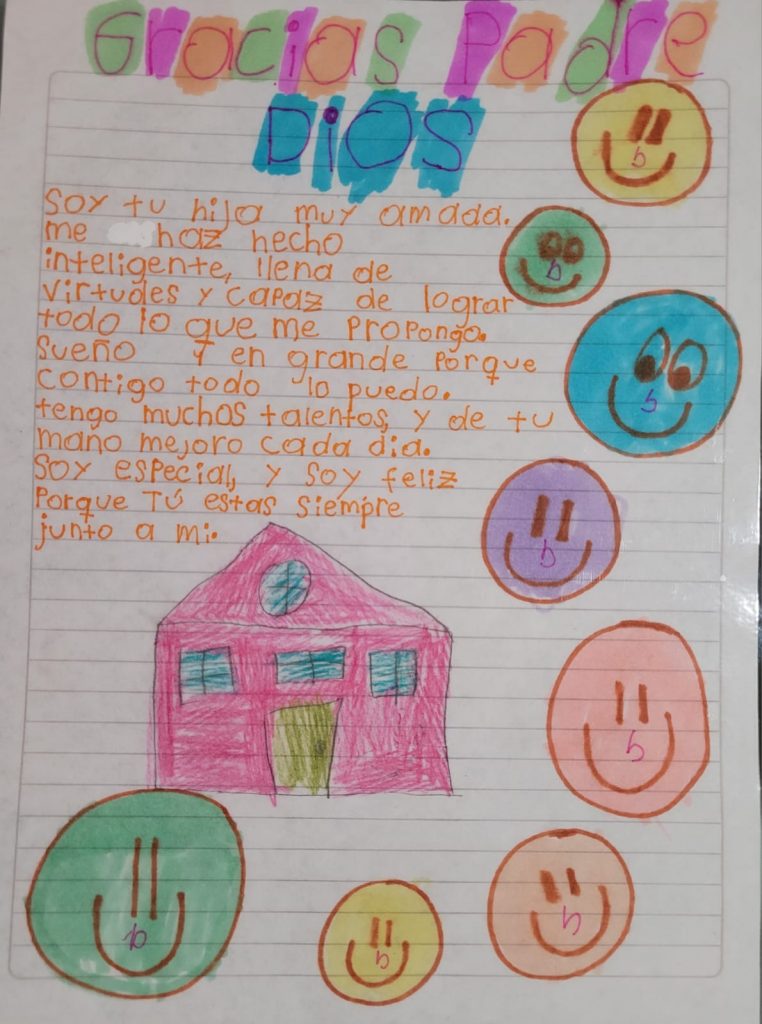 Gracias Padre
DiOS
Soy tu hija muy amada.
me haz hecho
inteligente, llena de
virtudes y capaz de lograr
todo lo que me propongo.
Sueño y en grande porque
contigo todo lo puedo.
tengo muchos talentos, y de tu
mano mejoro cada dia.
Soy especial, y soy feliz
Porque TÚ estas siempre
junto a mi.